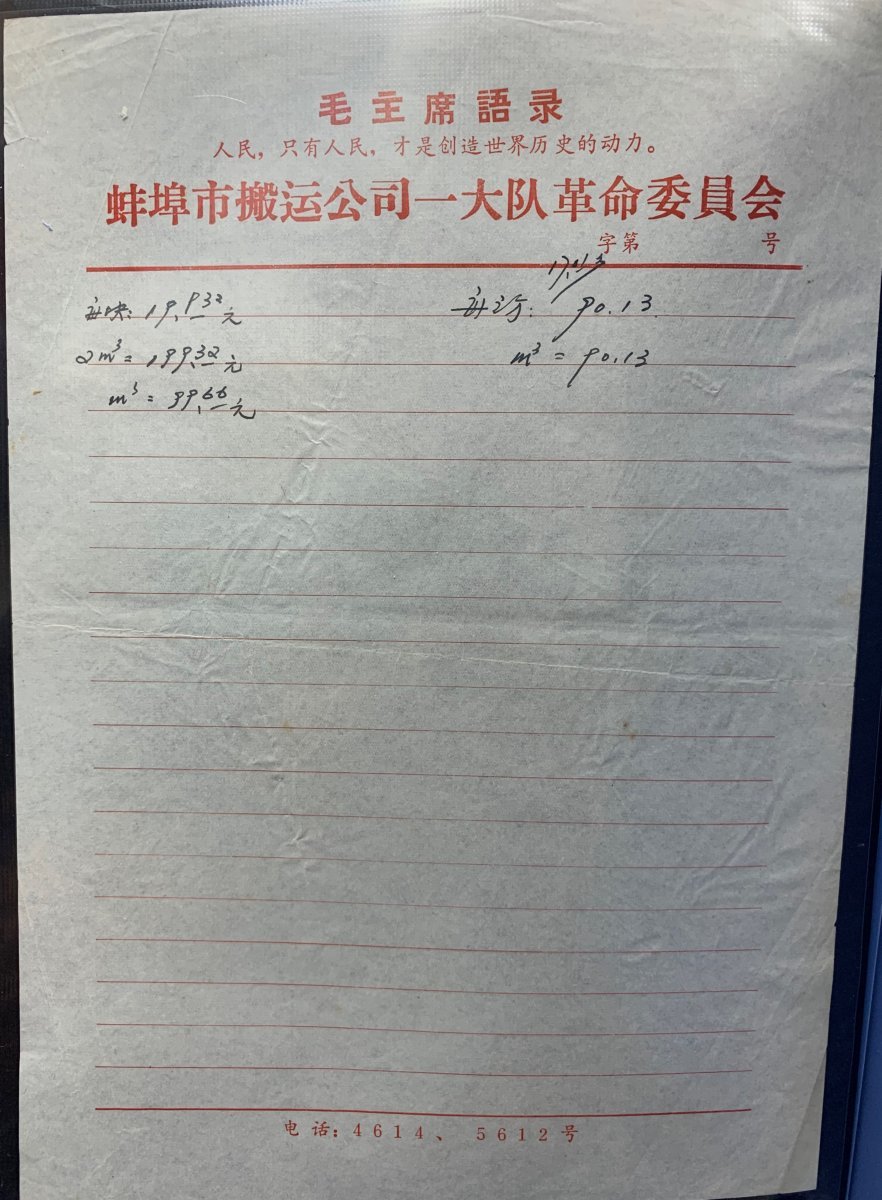 毛主席語录
人民，只有人民，才是创造世界历史的动力。
蚌埠市搬运公司一大队革命委員会
字第 号
每块：19.932元
2m³=199.32元
m³=99.66元
90.13
m³=90.13
电话：4614、5612号